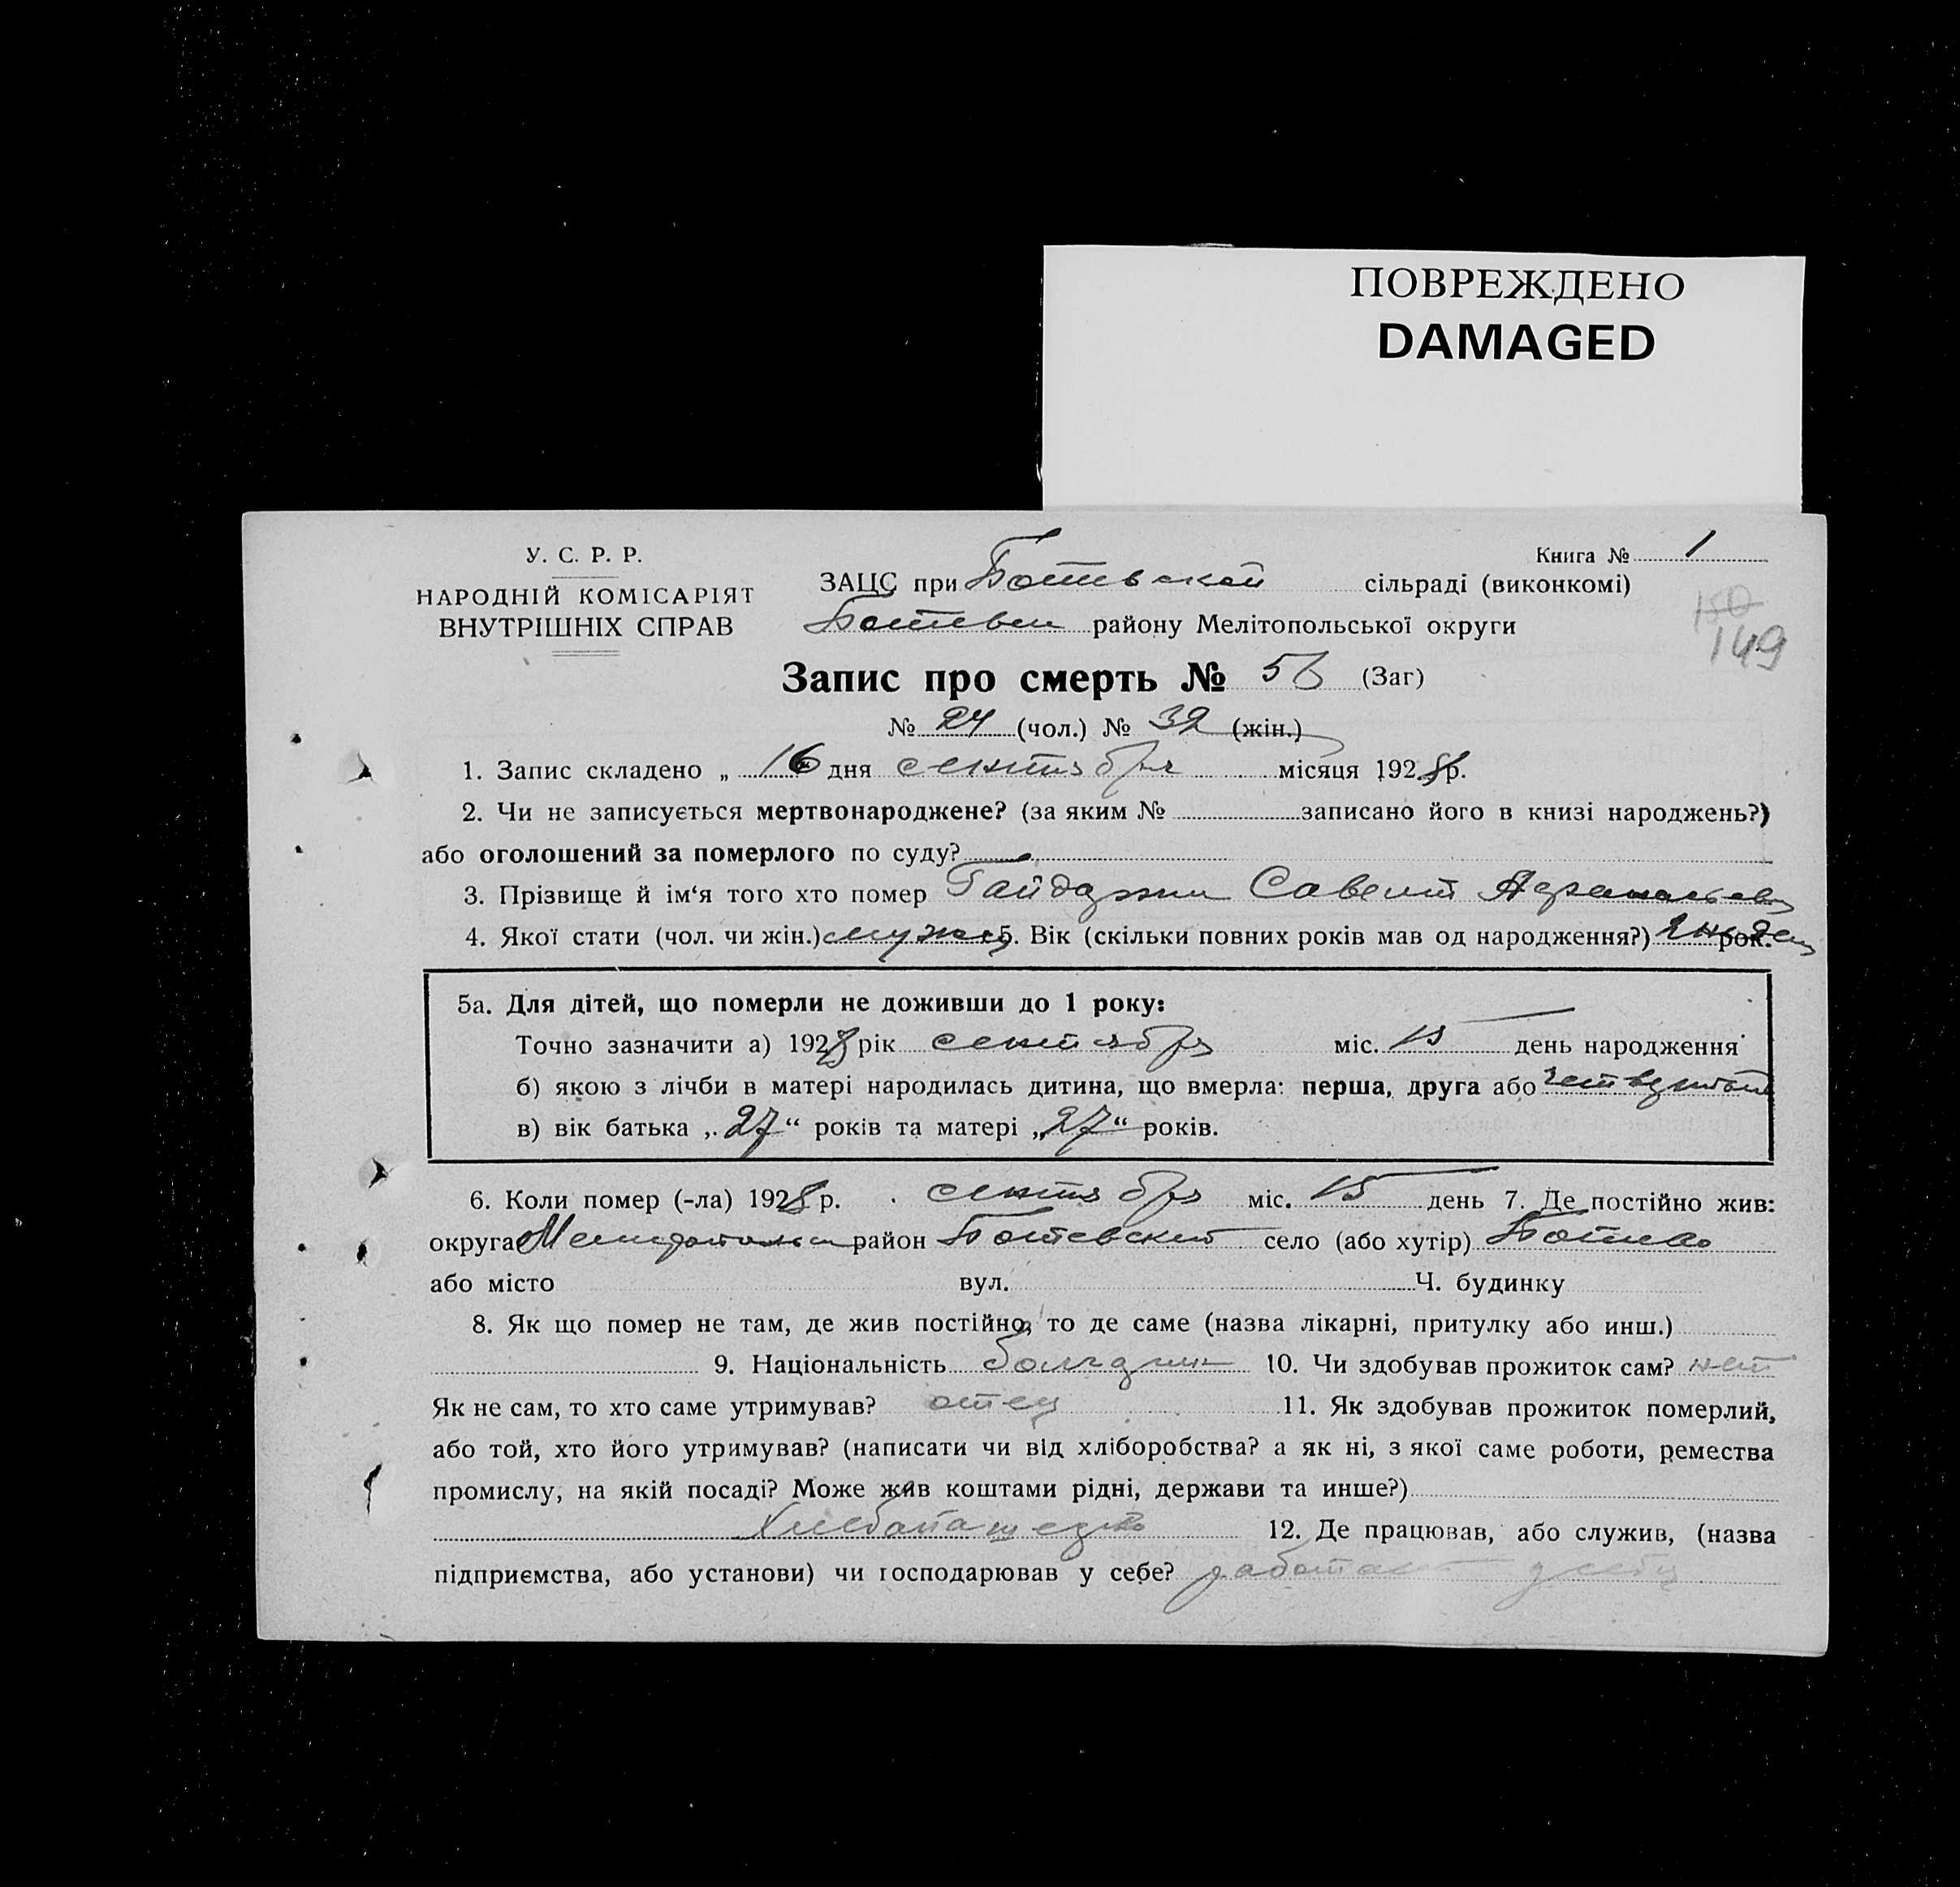 ПОВРЕЖДЕНО
DAMAGED
У. С. Р. Р.
НАРОДНІЙ КОМІСАРІЯТ
ВНУТРІШНІХ СПРАВ
Книга № 1
ЗАЦС при Ботевской сільраді (виконкомі)
району Мелітопольської округи
150
149
Запис про смерть № 56 (Заг)
№ 24 (чол.) № 32 (жін.)
1. Запис складено „ 16 дня сентября місяця 1928 р.
2. Чи не записується мертвонароджене? (за яким № записано його в книзі народжень?)
або оголошений за померлого по суду?
3. Прізвище й ім‘я того хто помер Гайдаржи Савелий
4. Якої стати (чол. чи жін.) 5. Вік (скільки повних років мав од народження?) рок.
5а. Для дітей, що померли не доживши до 1 року:
Точно зазначити а) 1928 рік сентября міс. 15 день народження
б) якою з лічби в матері народилась дитина, що вмерла: перша, друга або
в) вік батька „ 27 “ років та матері „ 27 “ років.
6. Коли помер (-ла) 1928 р. сентября міс. 15 день 7. Де постійно жив:
округа район Ботевский село (або хутір) Ботево
або місто вул. Ч. будинку
8. Як що помер не там, де жив постійно, то де саме (назва лікарні, притулку або инш.)
9. Національність болгарин 10. Чи здобував прожиток сам? нет
Як не сам, то хто саме утримував? отец 11. Як здобував прожиток померлий,
або той, хто його утримував? (написати чи від хліборобства? а як ні, з якої саме роботи, ремества
промислу, на якій посаді? Може жив коштами рідні, держави та инше?)
12. Де працював, або служив, (назва
підприємства, або установи) чи господарював у себе?